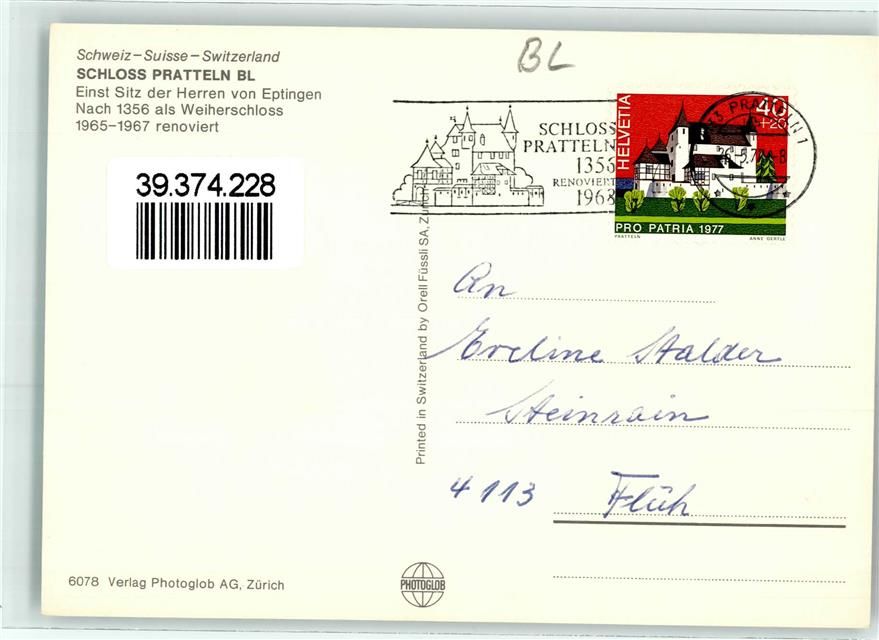 Schweiz – Suisse – Switzerland
SCHLOSS PRATTELN BL
Einst Sitz der Herren von Eptingen
Nach 1356 als Weiherschloss
1965–1967 renoviert
39.374.228
BL
SCHLOSS
PRATTELN
1356
RENOVIERT
1968
HELVETIA
40
+20
PRO PATRIA 1977
PRATTELN
ANNE OERTLE
PRATTELN 1
Printed in Switzerland by Orell Füssli SA, Zürich
An
Eveline Stalder
Steinrain
4113 Flüh
6078 Verlag Photoglob AG, Zürich
PHOTOGLOB